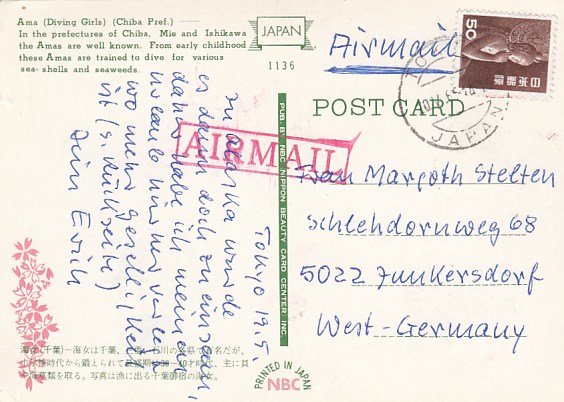 Ama (Diving Girls) (Chiba Pref.) —
In the prefectures of Chiba, Mie and Ishikawa
the Amas are well known. From early childhood
these Amas are trained to dive for various
sea-shells and seaweeds.
JAPAN
1136
Airmail
50
日本郵便
JAPAN
POST CARD
AIRMAIL
PUB. BY NBC NIPPON BEAUTY CARD CENTER; INC.
Tokyo 19.5.
In Alaska wurde
es dann doch zu einsam,
daher habe ich meinen
Urlaub hierher verlegt
wo mehr Geselligkeit
ist (s. Rückseite)
Dein Erich
Frau Margoth Stelten
Schlehdornweg 68
5022 Junkersdorf
West-Germany
海女(千葉)−海女は千葉、三重、石川の各県で有名だが、
を取る。写真は漁に出る千葉御宿の海女。
PRINTED IN JAPAN
NBC